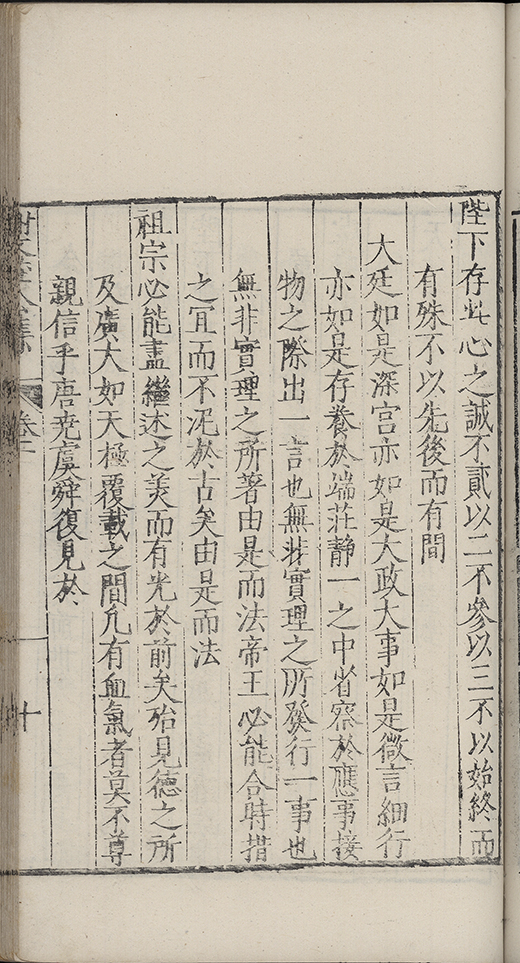 陛下存此心之誠不貳以二不參以三不以始終而
有殊不以先後而有間
大廷如是深宮亦如是大政大事如是微言細行
亦如是存養於端莊静一之中省察於應事接
物之際出一言也無非實理之所發行一事也
無非實理之所著由是而法帝王必能合時措
之宜而不泥於古矣由是而法
祖宗必能盡繼述之美而有光於前矣殆見德之所
及廣大如天極覆載之間凢有血氣者莫不尊
親信乎唐尭虞舜復見於
卷二
十